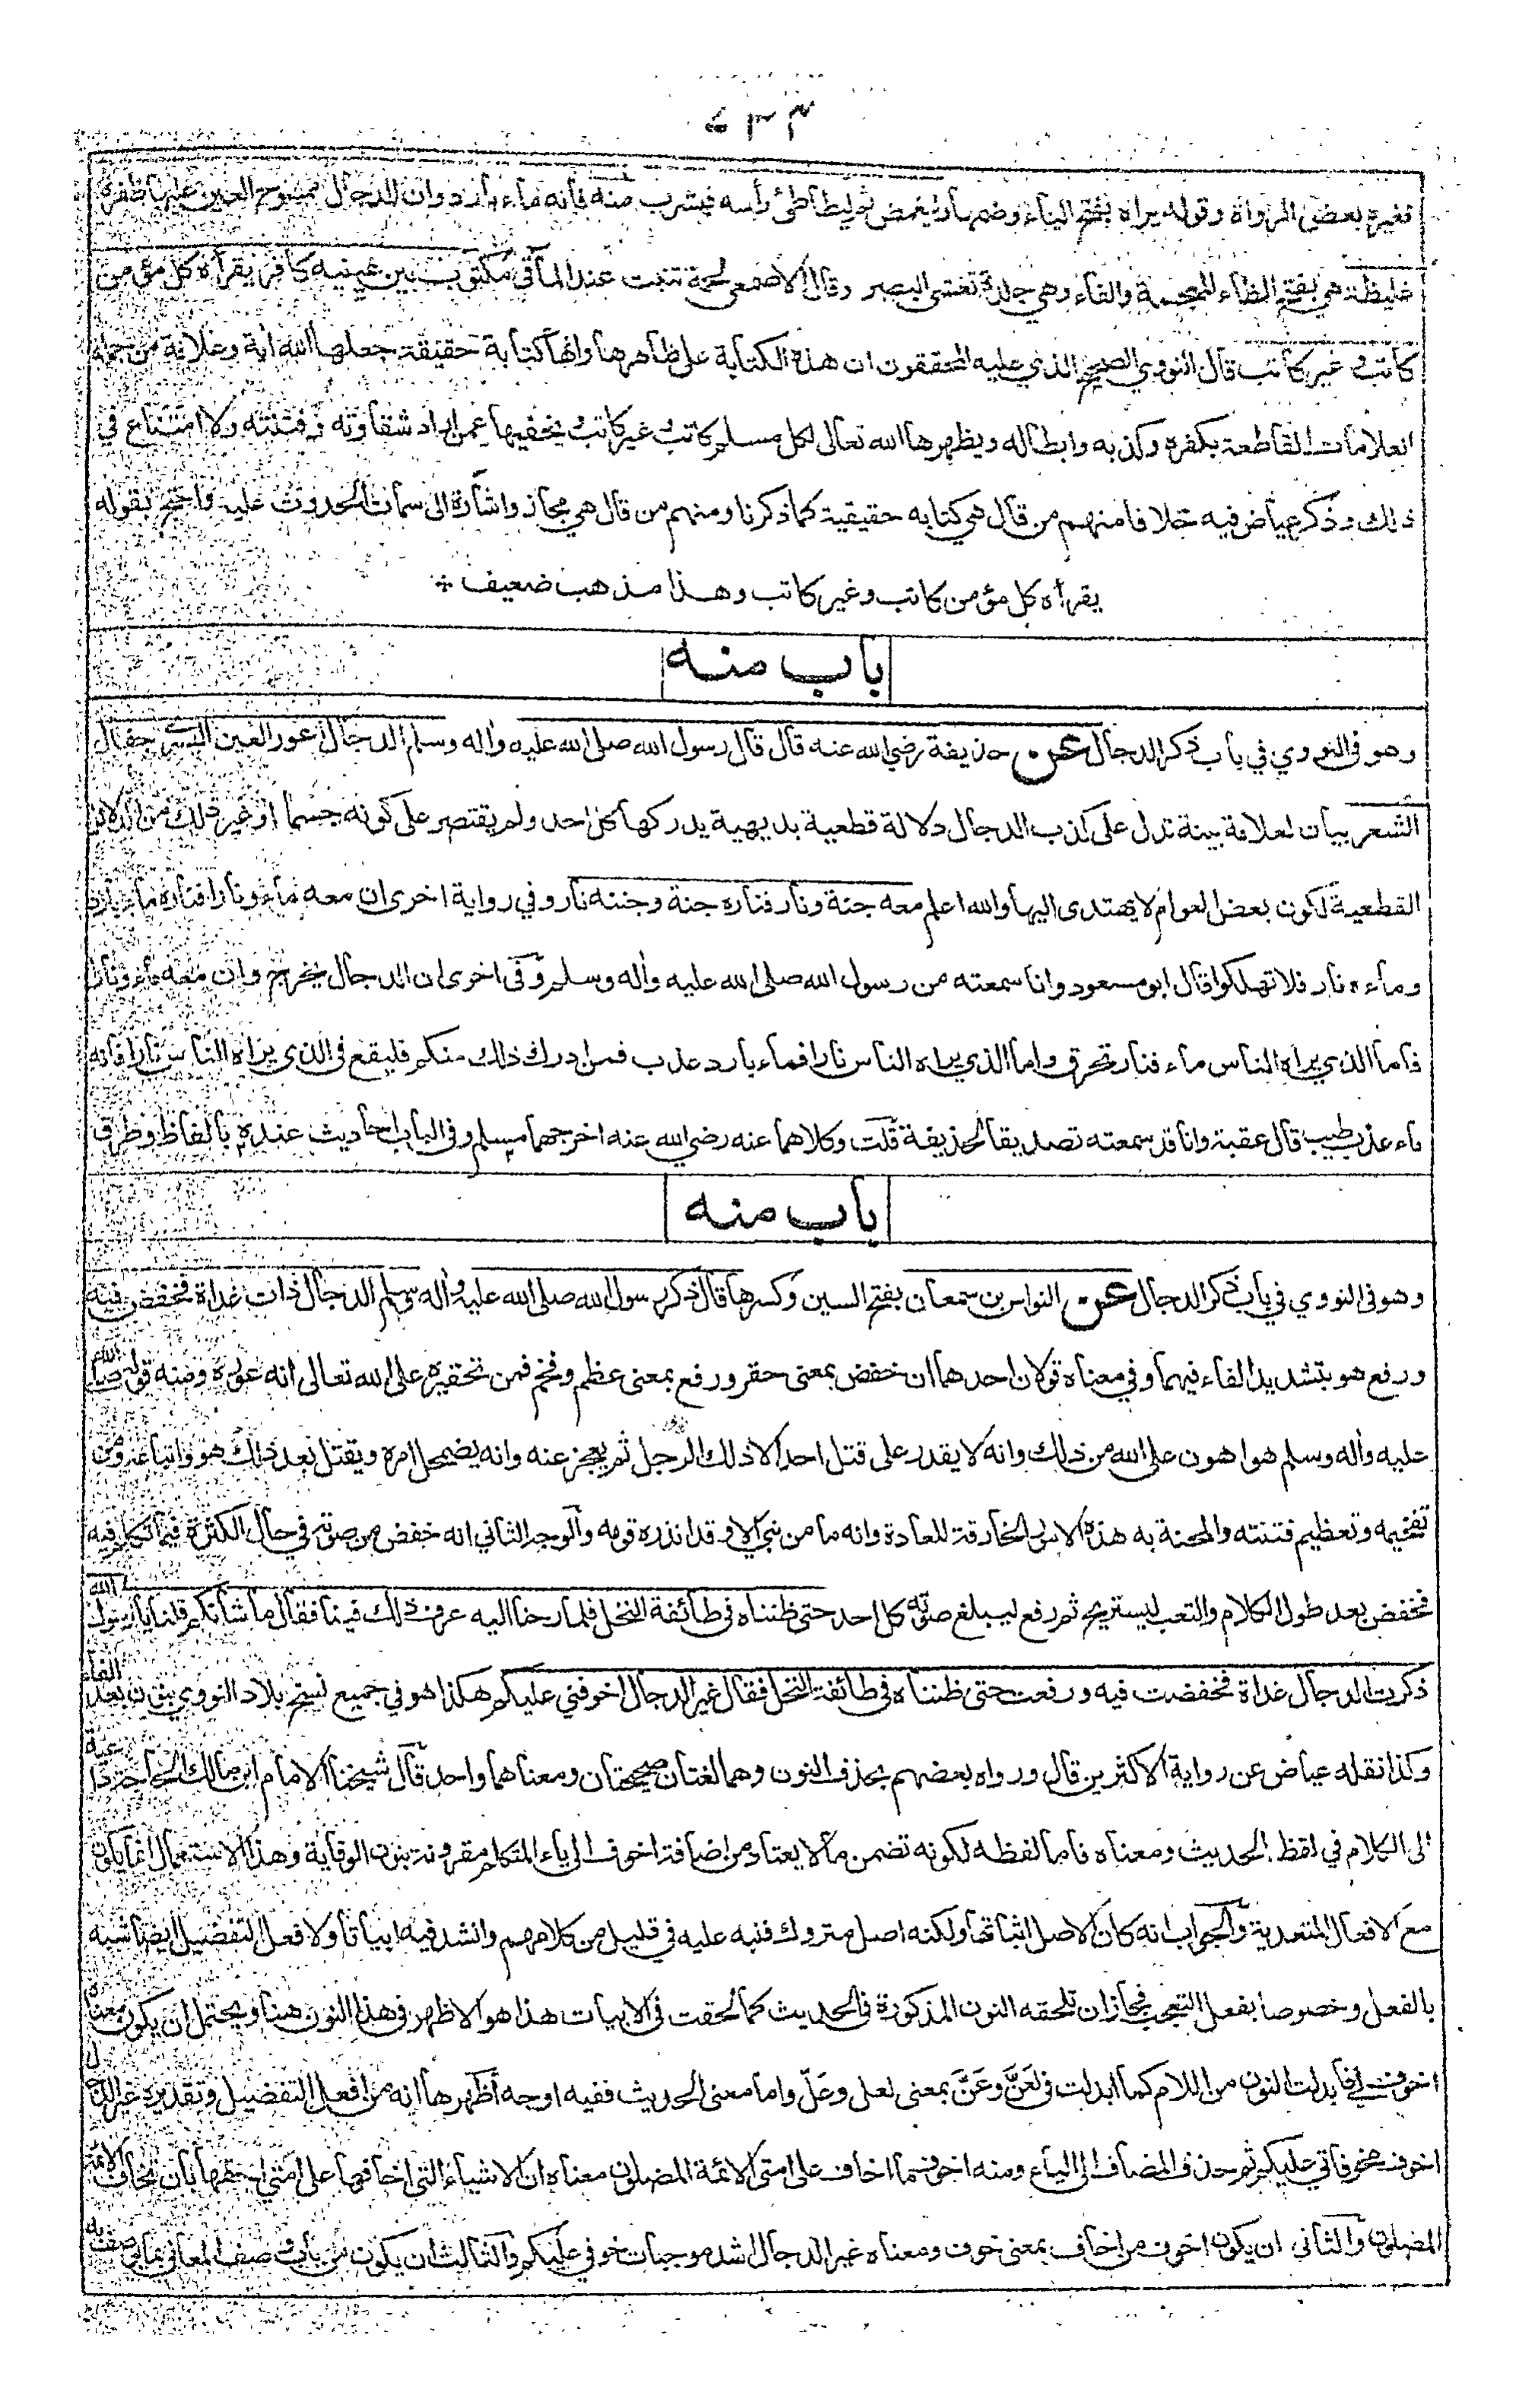 ٦٣٣
فغيره بعض الرواة وقوله يراه بفتح الياء وضمها ثم ليغمض ثم ليطأطئ رأسه فيشرب منه فانه ماء بارد وان الدجال ممسوح العين عليها ظفرة
غليظة هي بفتح الظاء المعجمة والفاء وهي جلدة تغشى البصر وقال الاصمعي لحمة تنبت عند المآقي مكتوب بين عينيه كافر يقرأه كل مؤمن
كاتب وغير كاتب قال النووي الصحيح الذي عليه المحققون ان هذه الكتابة على ظاهرها وانها كتابة حقيقة جعلها الله آية وعلامة من جملة
العلامات القاطعة بكفره وكذبه وابطاله ويظهرها الله تعالى لكل مسلم كاتب وغير كاتب ويخفيها عمن اراد شقاوته وفتنته ولا امتناع في
ذلك وذكر عياض فيه خلافا منهم من قال هي كتابه حقيقية كما ذكرنا ومنهم من قال هي مجاز واشارة الى سمات الحدوث عليه واحتج بقوله
يقرأه كل مؤمن كاتب وغير كاتب وهذا مذهب ضعيف *
باب منه
وهو في النووي في باب ذكر الدجال عن حذيفة رضي الله عنه قال قال رسول الله صلى الله عليه وأله وسلم الدجال اعور العين اليسرى جفال
الشعر بيان لعلامة بينة تدل على كذب الدجال دلالة قطعية بديهية يدركها كل احد ولم يقتصر على كونه جسما او غير ذلك من الدلائل
القطعية لكون بعض العوام لا يهتدى اليها والله اعلم معه جنة ونار فناره جنة وجنته نار وفي رواية اخرى ان معه ماء ونارا فناره ماء بارد
وماءه نار فلا تهلكوا قال ابو مسعود وانا سمعته من رسول الله صلى الله عليه وأله وسلم وفي اخرى ان الدجال يخرج وان معه ماء ونارا
فاما الذي يراه الناس ماء فنار تحرق واما الذي يراه الناس نارا فماء بارد عذب فمن ادرك ذلك منكم فليقع في الذي يراه الناس نارا فانه
ماء عذب طيب قال عقبة وانا قد سمعته تصديقا لحذيفة قلت وكلاهما عنه رضي الله عنه اخرجهما مسلم وفي الباب احاديث عنده بالفاظ وطرق
باب منه
وهو في النووي في باب ذكر الدجال عن النواس بن سمعان بفتح السين وكسرها قال ذكر رسول الله صلى الله عليه وأله وسلم الدجال ذات غداة فخفض فيه
ورفع هو بتشديد الفاء فيهما وفي معناه قولان احدهما ان خفض بمعنى حقر ورفع بمعنى عظم وفخم فمن تحقيره على الله تعالى انه عوره ومنه قوله صلى الله
عليه وأله وسلم هو اهون على الله من ذلك وانه لا يقدر على قتل احد الا ذلك الرجل ثم يعجز عنه وانه يضمحل امره ويقتل بعد ذلك هو واتباعه ومن
تفخيمه وتعظيم فتنته والمحنة به هذه الامور الخارقة للعادة وانه ما من نبي الا وقد انذره قومه والوجه الثاني انه خفض من صوته في حال الكثرة فيما تكلم فيه
فخفض بعد طول الكلام والتعب ليستريح ثم رفع ليبلغ صوته كل احد حتى ظنناه في طائفة النخل فلما رحنا اليه عرف ذلك فينا فقال ما شأنكم قلنا يا رسول الله
ذكرت الدجال غداة فخفضت فيه ورفعت حتى ظنناه في طائفة النخل فقال غير الدجال اخوفني عليكم هكذا هو في جميع نسخ بلاد النووي بنون بعد الفاء
وكذا نقله عياض عن رواية الاكثرين قال ورواه بعضهم بحذف النون وهما لغتان صحيحتان ومعناهما واحد قال شيخنا الامام ابن مالك الحاجة داعية
الى الكلام في لفظ الحديث ومعناه فاما لفظه لكونه تضمن ما لا يعتاد من اضافة اخوف الى ياء المتكلم مقرونة بنون الوقاية وهذا الاستعمال انما يكون
مع الافعال المتعدية والجواب انه كان الاصل اثباتها ولكنه اصل متروك فنبه عليه في قليل من كلامهم وانشد فيه ابياتا ولافعل التفضيل ايضا شبه
بالفعل وخصوصا بفعل التعجب فجاز ان تلحقه النون المذكورة في الحديث كما لحقت في الابيات هذا هو الاظهر في هذا النون هنا ويحتمل ان يكون معناه
اخوف لي فابدلت النون من اللام كما ابدلت في لعنّ وعنّ بمعنى لعل وعلّ واما معنى الحديث ففيه اوجه أظهرها انه من افعل التفضيل وتقديره غير الدجال
اخوف مخوفاتي عليكم ثم حذف المضاف الى الياء ومنه اخوف ما اخاف على امتي الائمة المضلون معناه ان الاشياء التي اخافها على امتي احقها بان تخاف الائمة
المضلون والثاني ان يكون اخوف من اخاف بمعنى خوف ومعناه غير الدجال اشد موجبات خوفي عليكم والثالث ان يكون من باب وصف المعاني بما يوصف به